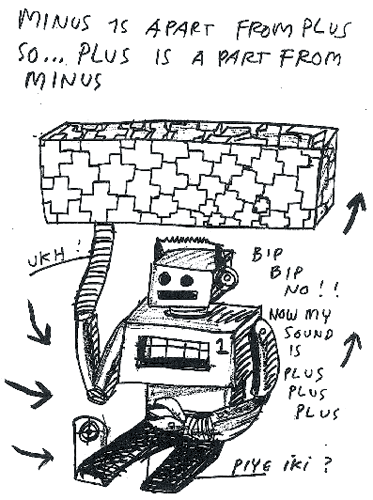 MINUS IS APART FROM PLUS
SO... PLUS IS A PART FROM
MINUS
UKH!
BIP
BIP
NO!!
NOW MY
SOUND
IS
PLUS
PLUS
PLUS
1
PIYE iKi ?